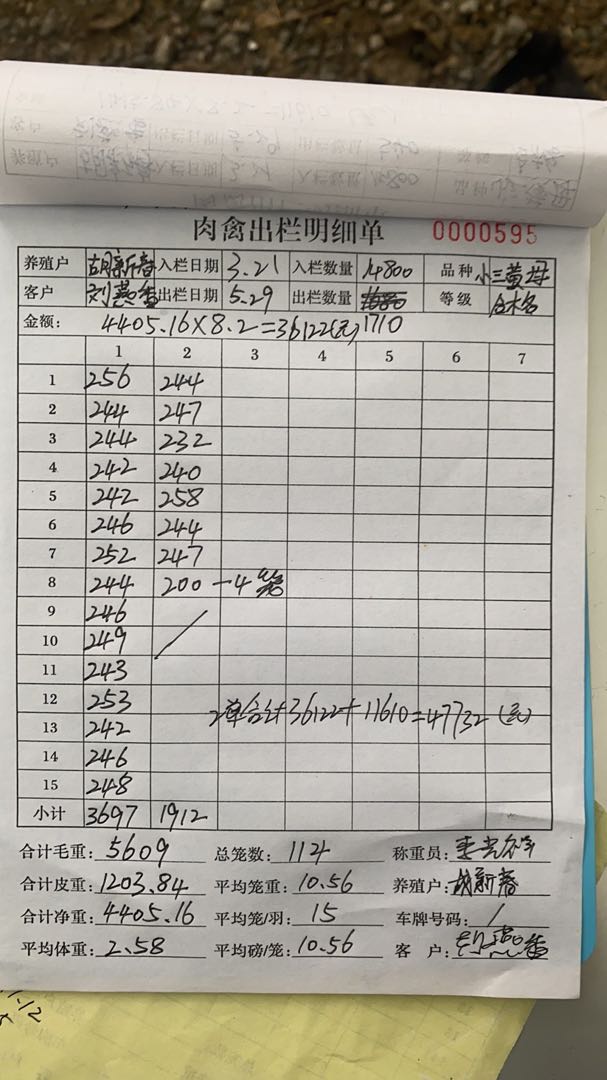 肉禽出栏明细单 0000595
养殖户 胡新春 入栏日期 3.21 入栏数量 14800 品种 小三黄母
客户 刘慧香 出栏日期 5.29 出栏数量 1710 等级
金额: 4405.16×8.2=36122(元)
1 2 3 4 5 6 7
1 256 244
2 244 247
3 244 232
4 242 240
5 242 258
6 246 244
7 252 247
8 244 200 -4笼
9 246
10 249
11 243
12 253
2单合计36122+11610=47732(元)
13 242
14 246
15 248
小计 3697 1912
合计毛重: 5609 总笼数: 114 称重员:
合计皮重: 1203.84 平均笼重: 10.56 养殖户: 胡新春
合计净重: 4405.16 平均笼/羽: 15 车牌号码: /
平均体重: 2.58 平均磅/笼: 10.56 客 户: 刘慧香